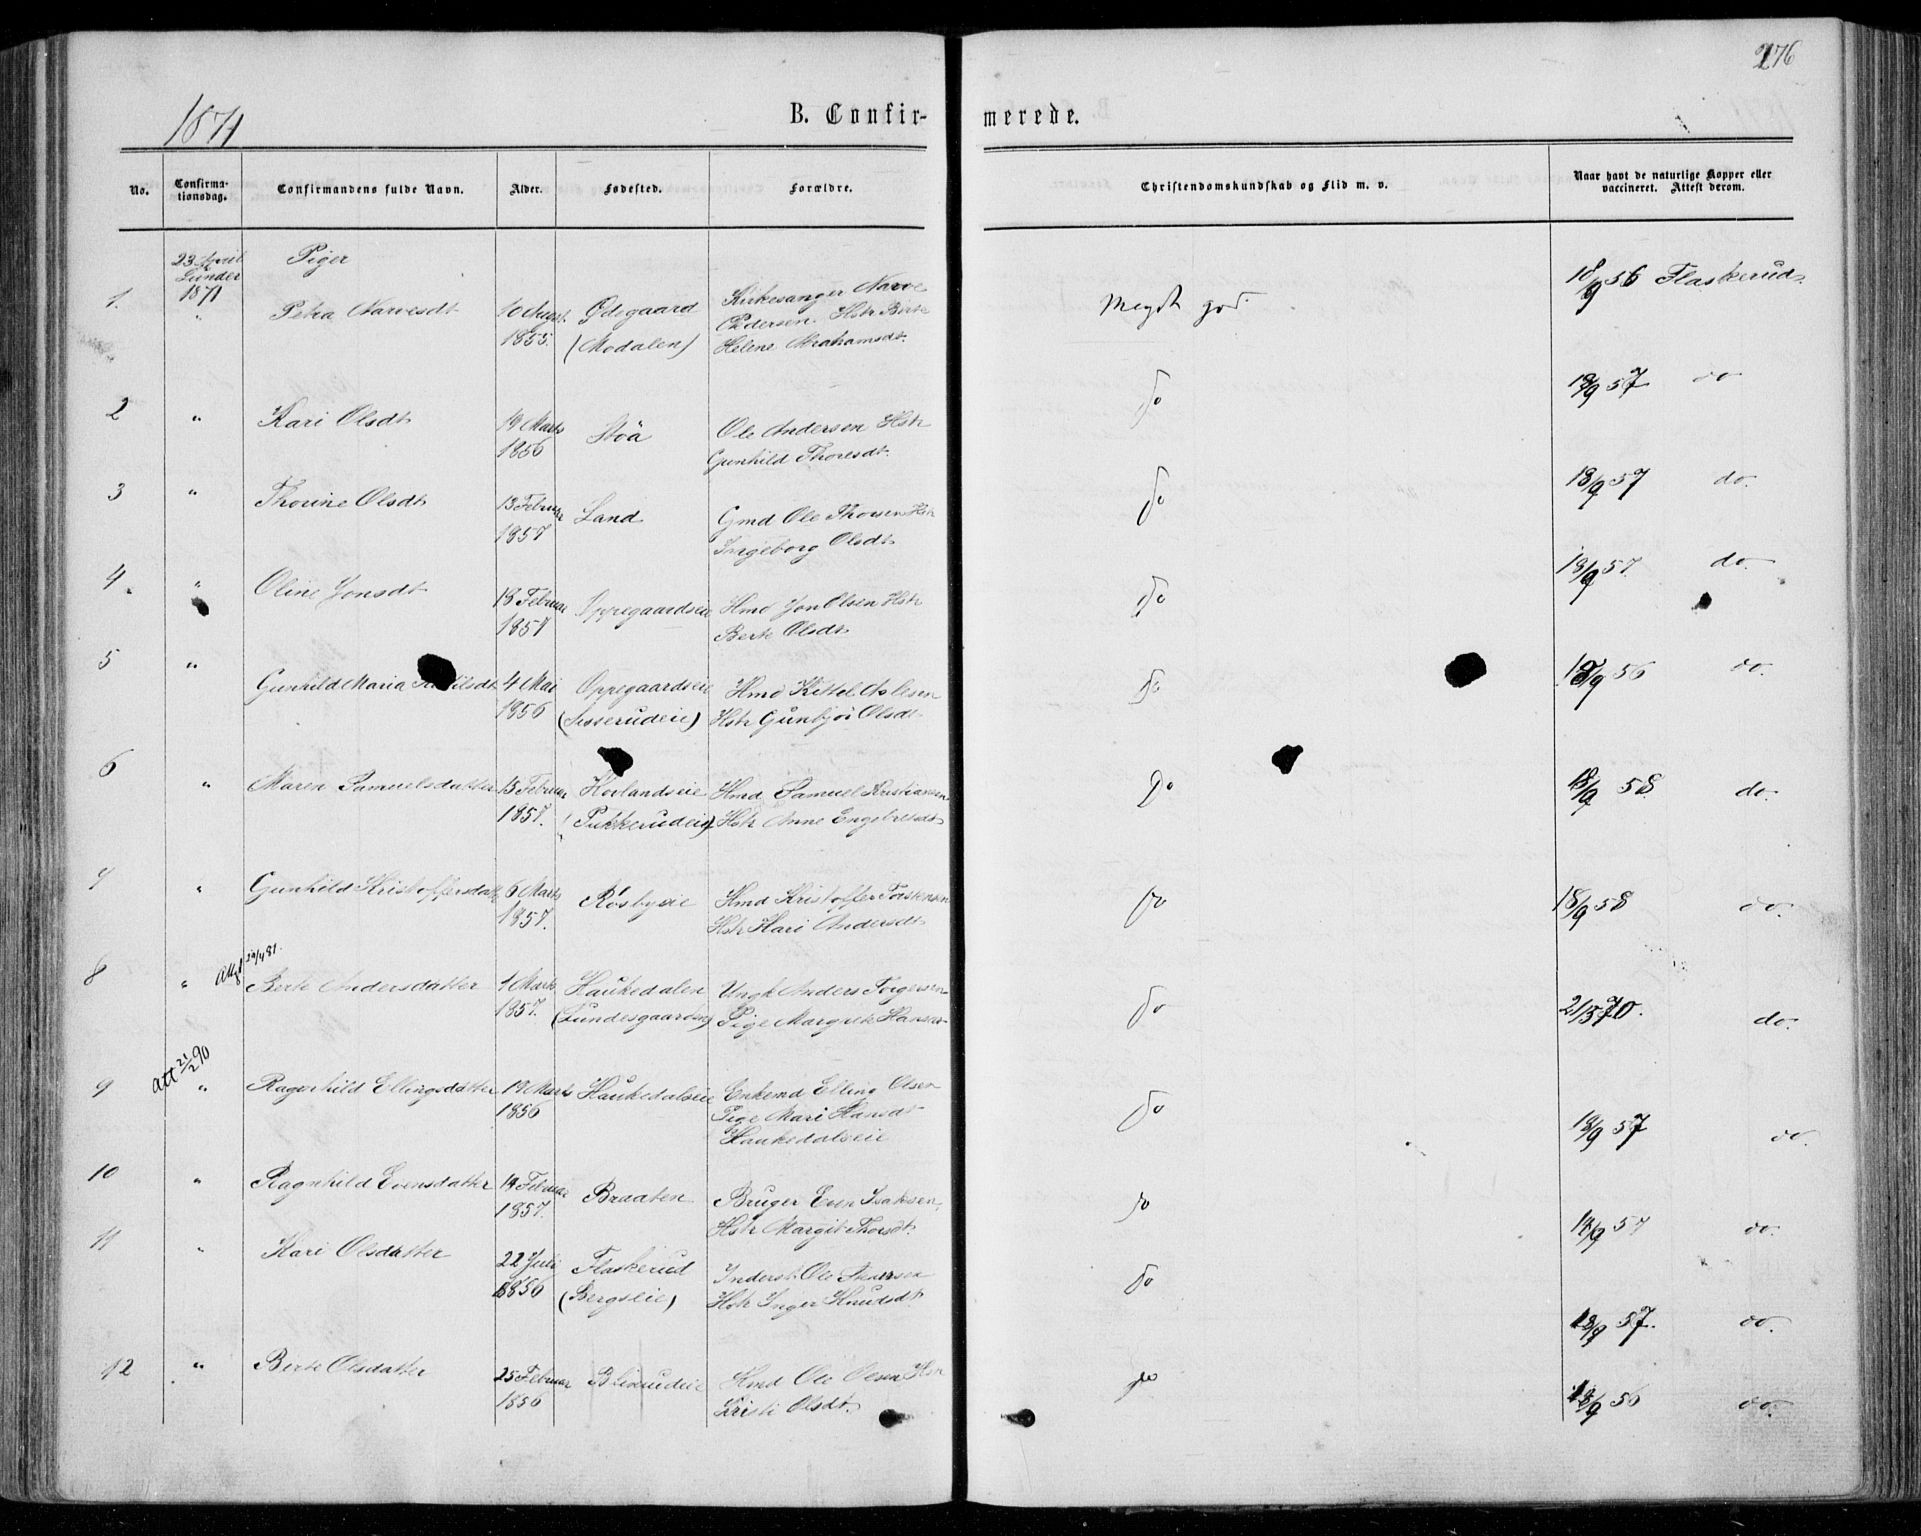 276
1871
B. Confir-
merede.
No.
Confirma-
tionsdag.
Confirmandens fulde Navn.
Alder.
Fødested.
Forældre.
Christendomskundskab og Flid m. v.
Naar havt de naturlige Kopper eller
vaccineret. Attest derom.
23 April
Lunder
1871
Piger
1. " Petra Narvesdt 10 August Ødegaard Kirkesanger Narve Meget god. 18/9 56 Flaskerud
1855. (Modalen) Pedersen. Hstr Berte
Helene Abrahamsdt.
2 " Kari Olsdt 19 Marts Støa Ole Andersen Hstr do 18/9 57 do
1856 Gunhild Thoresdt.
3 " Thorine Olsdt 13 Februar Land Gmd Ole Thorsen Hstr do 18/9 57 do.
1857 Ingeborg Olsdt
4. " Oline Jonsdt 13 Februar Oppegaardseie Hmd Jon Olsen Hstr do 18/9 57. do.
1857 Berte Olsdt
5 " Gunhild Maria 4 Mai Oppegaardseie Hmd Kittel Aslesen do 18/9 56 do.
1856 (Sisserudeie) Hstr Gunbjør Olsdt
6 " Maren Samuelsdatter 15 Februar Hovlandseie Hmd Samuel Kristiansen do 18/9 58. do.
1857. (Pukkerudeie) Hstr Anne Engebretsdt
7 " Gunhild Kristoffersdatter 6 Marts Rosbyeie Hmd Kristoffer Torstensen do 18/9 58 do.
1857. Hstr Kari Andersdt
Attest 29/4 81.
8 " Berte Andersdatter 1 Marts Haukedalen Ungk Anders Torgersen do 21/5 70. do.
1857. (Lundesgaarden) Pige Margrete Hansdt
Att 21/2 90
9 " Ragnhild Ellingsdatter 19 Marts Haukedalseie Enkemd Elling Olsen do 18/9 57 do.
1856 Pige Mari Hansdt
Haukedalseie
10 " Ragnhild Evensdatter 14 Februar Braaten Bruger Even Isaksen, do 18/9 57 do.
1857. Hstr Margit Thorsdt.
11 " Kari Olsdatter 22 Juli Flaskerud Inderst Ole Andersen do 18/9 57. do.
1856 (Bergseie) Hstr Inger Knudsdt
12 " Berte Olsdatter 25 Februar Hmd Ole Olsen Hstr do 18/9 56 do.
1856 Kristi Olsdt.